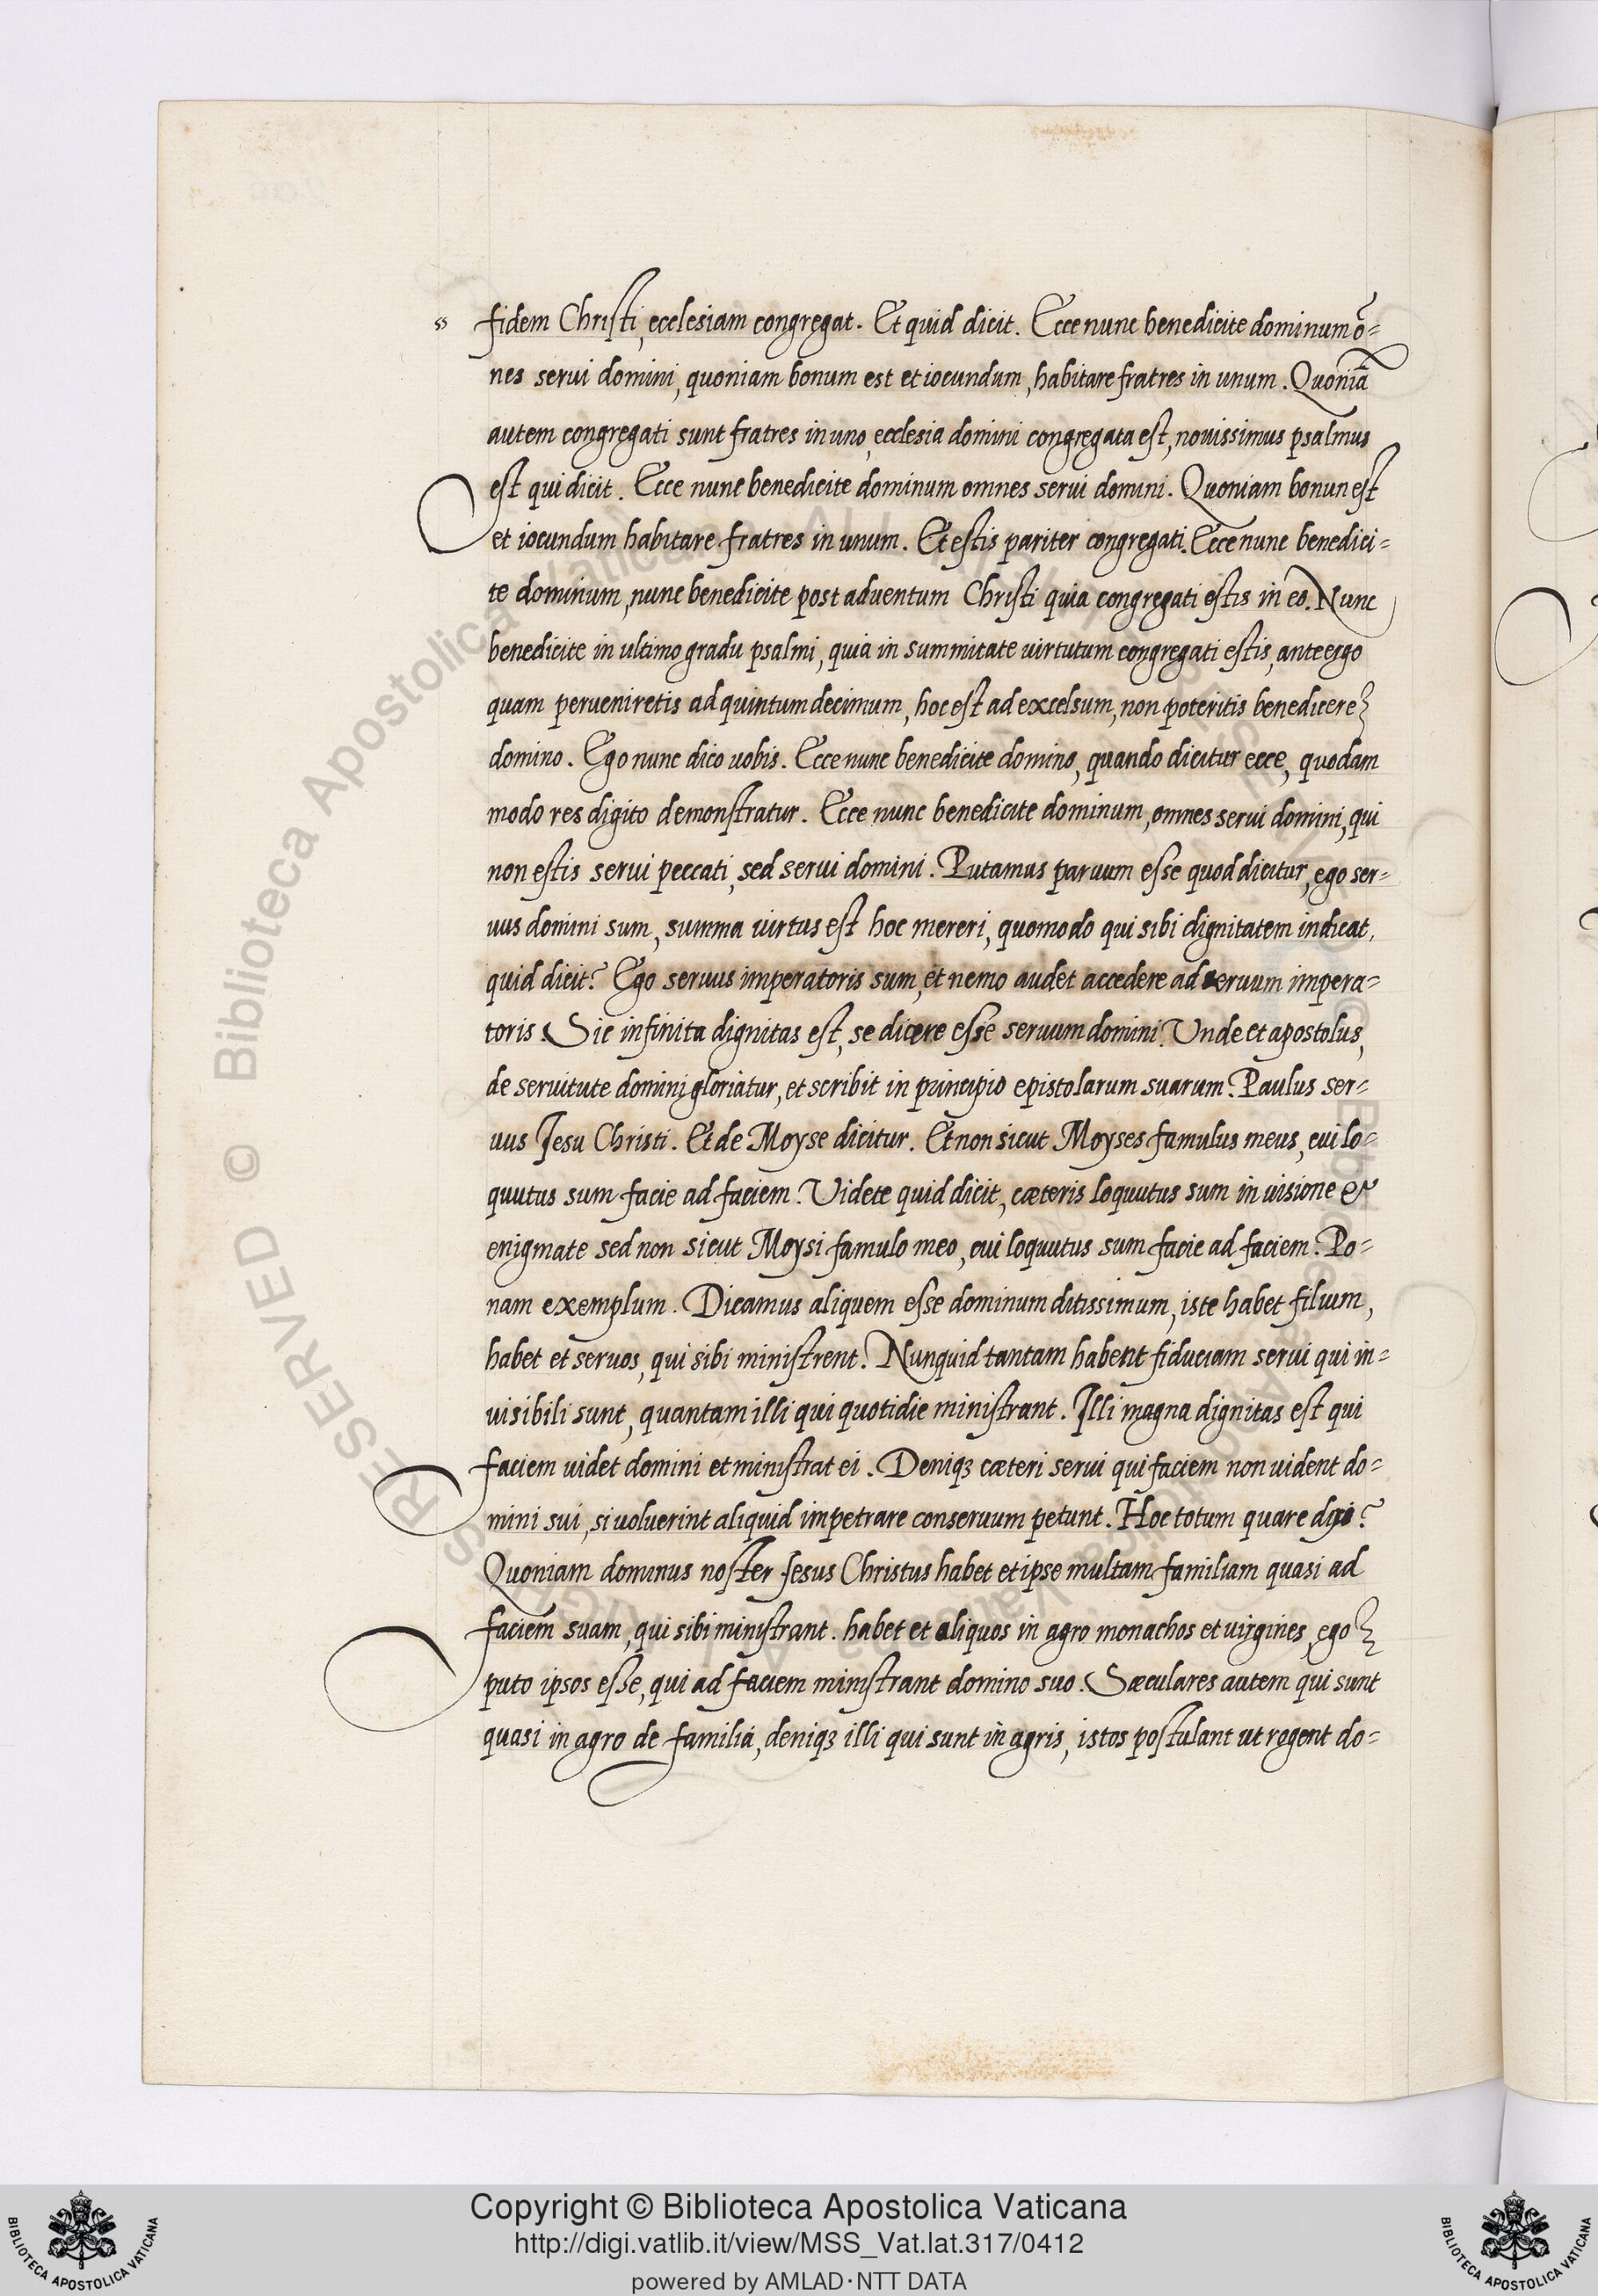 ss fidem Christi, ecclesiam congregat. Et quid dicit. Ecce nunc benedicite dominum õ=
nes serui domini, quoniam bonum est et iocundum, habitare fratres in unum. Quoniã
autem congregati sunt fratres in uno, ecclesia domini congregata est, nouissimus psalmus
est qui dicit. Ecce nunc benedicite dominum omnes serui domini. Quoniam bonun est
et iocundum habitare fratres in unum. Et estis pariter congregati. Ecce nunc benedici=
te dominum, nunc benedicite post aduentum Christi quia congregati estis in eo. Nunc
benedicite in ultimo gradu psalmi, quia in summitate uirtutum congregati estis, ante ergo
quam perueniretis ad quintum decimum, hoc est ad excelsum, non poteritis benedicere
domino. Ego nunc dico uobis. Ecce nunc benedicite domino, quando dicitur ecce, quodam
modo res digito demonstratur. Ecce nunc benedicite dominum, omnes serui domini, qui
non estis serui peccati, sed serui domini. Putamus paruum esse quod dicitur, ego ser=
uus domini sum, summa uirtus est hoc mereri, quomodo qui sibi dignitatem indicat,
quid dicit? Ego seruus imperatoris sum, et nemo audet accedere ad seruum impera=
toris. Sic infinita dignitas est, se dicere esse seruum domini. Unde et apostolus,
de seruitute domini gloriatur, et scribit in principio epistolarum suarum. Paulus ser=
uus Jesu Christi. Et de Moyse dicitur. Et non sicut Moyses famulus meus, cui lo=
quutus sum facie ad faciem. Videte quid dicit, cæteris loquutus sum in uisione &
enigmate sed non sicut Moysi famulo meo, cui loquutus sum facie ad faciem. Po=
nam exemplum. Dicamus aliquem esse dominum ditissimum, iste habet filium,
habet et seruos, qui sibi ministrent. Nunquid tantam habent fiduciam serui qui in=
uisibili sunt, quantam illi qui quotidie ministrant. Illi magna dignitas est qui
faciem uidet domini et ministrat ei. Deniqȝ cæteri serui qui faciem non uident do=
mini sui, si uoluerint aliquid impetrare conseruum petunt. Hoc totum quare dixi?
Quoniam dominus noster Jesus Christus habet et ipse multam familiam quasi ad
faciem suam, qui sibi ministrant. habet et aliquos in agro monachos et uirgines, ego
puto ipsos esse, qui ad faciem ministrant domino suo. Sæculares autem qui sunt
quasi in agro de familia, deniqȝ illi qui sunt in agris, istos postulant ut rogent do=
Copyright © Biblioteca Apostolica Vaticana
http://digi.vatlib.it/view/MSS_Vat.lat.317/0412
powered by AMLAD·NTT DATA
BIBLIOTECA APOSTOLICA VATICANA
BIBLIOTECA APOSTOLICA VATICANA